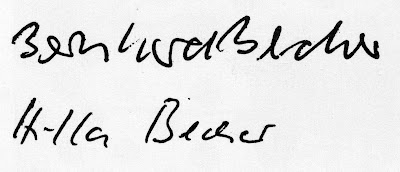 Bernhard Becher
Hilla Becher